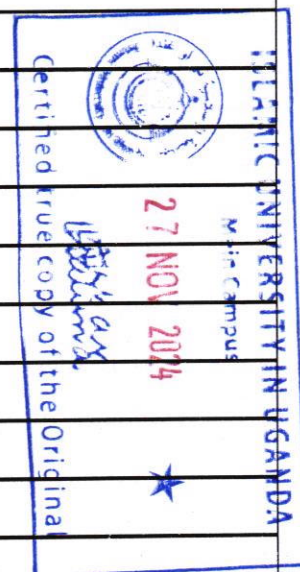 ISLAMIC UNIVERSITY IN UGANDA
Main Campus
27 NOV 2024
Certified true copy of the Original